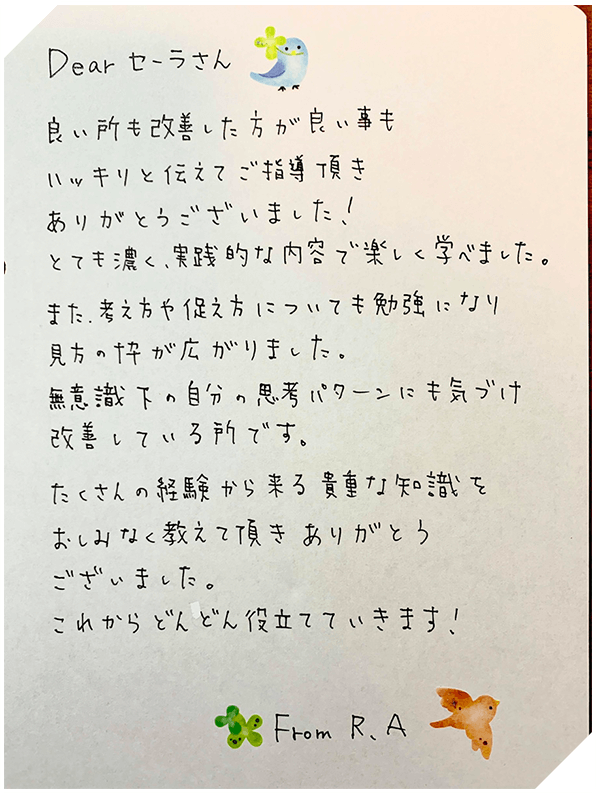 Dear セーラさん
良い所も改善した方が良い事も
ハッキリと伝えてご指導頂き
ありがとうございました!
とても濃く、実践的な内容で楽しく学べました。
また、考え方や促え方についても勉強になり
見方の枠が広がりました。
無意識下の自分の思考パターンにも気づけ
改善している所です。
たくさんの経験から来る貴重な知識を
おしみなく教えて頂きありがとう
ございました。
これからどんどん役立てていきます!
From R.A